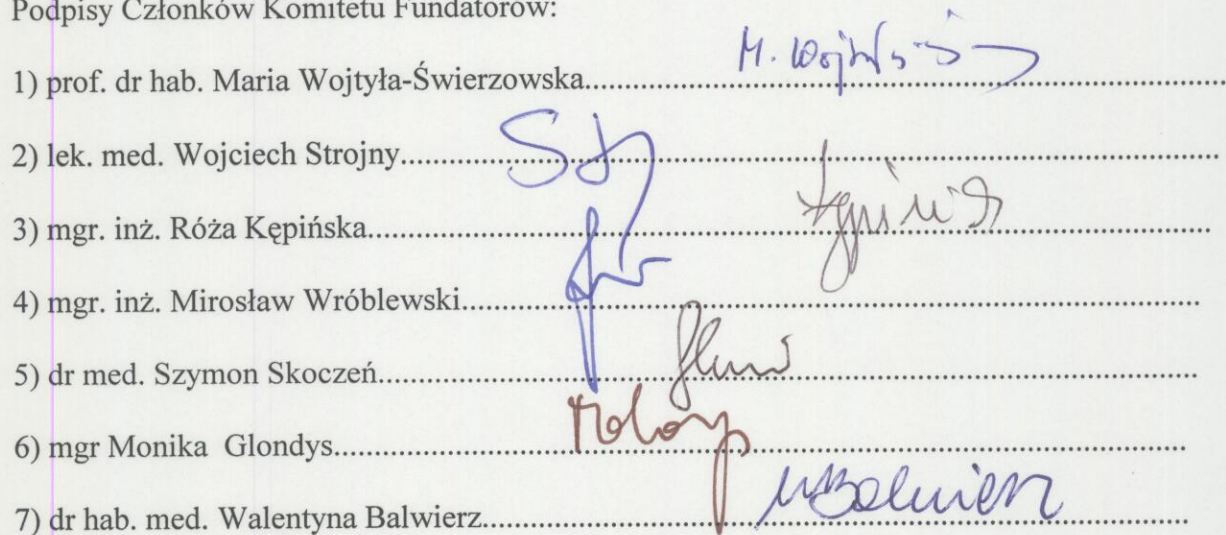 Podpisy Członków Komitetu Fundatorów:
1) prof. dr hab. Maria Wojtyła-Świerzowska
2) lek. med. Wojciech Strojny
3) mgr. inż. Róża Kępińska
4) mgr. inż. Mirosław Wróblewski
5) dr med. Szymon Skoczeń
6) mgr Monika Glondys
7) dr hab. med. Walentyna Balwierz